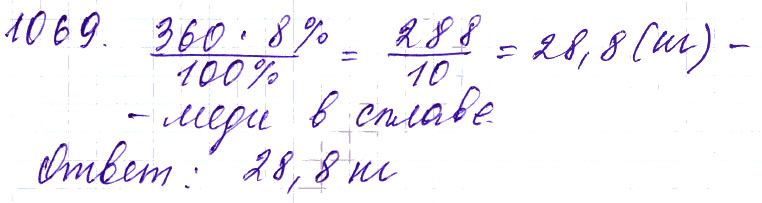 1069. 360 · 8% / 100% = 288 / 10 = 28,8 (кг) –
– меди в сплаве
Ответ: 28,8 кг